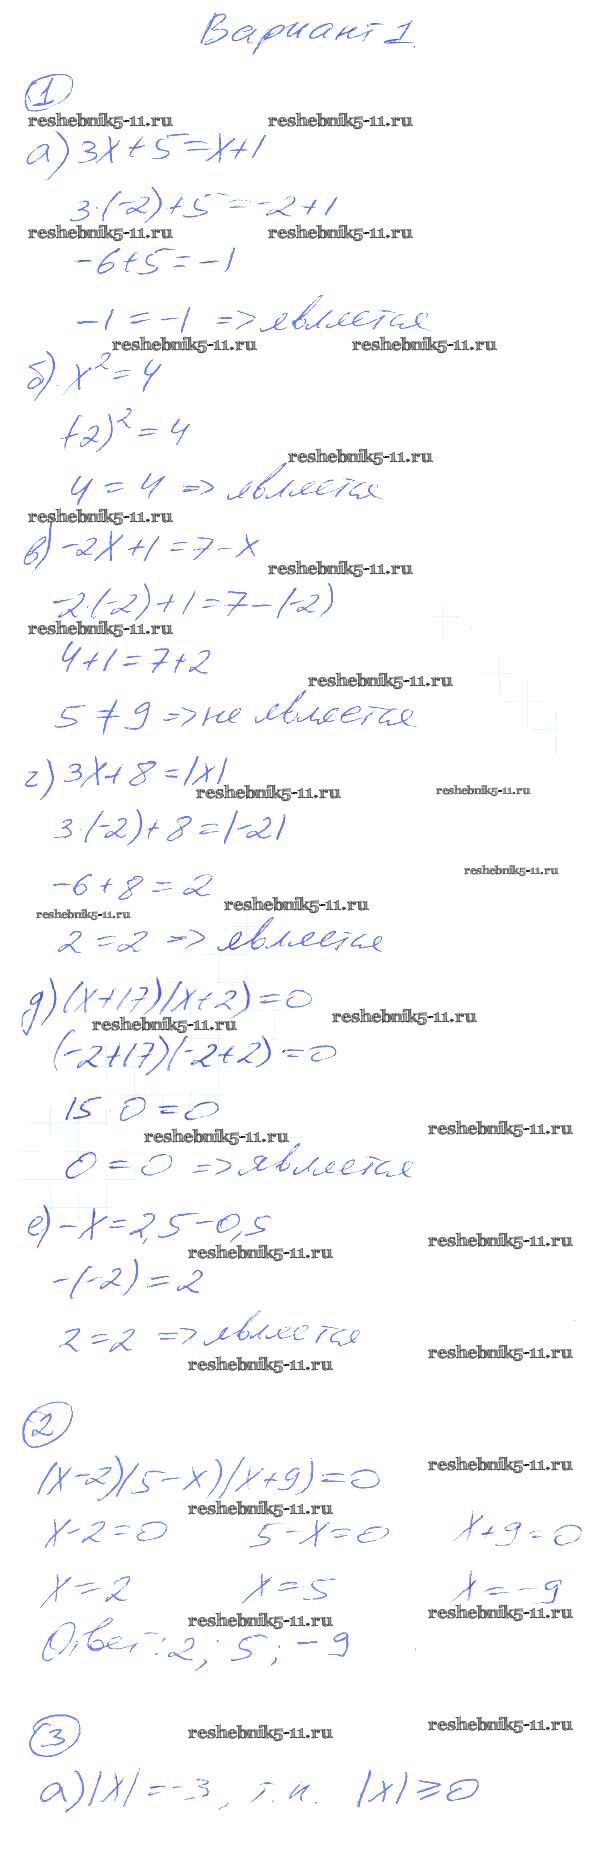 Вариант 1.
1
reshebnik5-11.ru reshebnik5-11.ru
а) 3x+5=x+1
3·(-2)+5=-2+1
reshebnik5-11.ru reshebnik5-11.ru
-6+5=-1
-1=-1 => является
reshebnik5-11.ru reshebnik5-11.ru
б) x²=4
(-2)²=4
reshebnik5-11.ru
4=4 => является
reshebnik5-11.ru
в) -2x+1=7-x
reshebnik5-11.ru
-2·(-2)+1=7-(-2)
reshebnik5-11.ru
4+1=7+2
reshebnik5-11.ru
5≠9 => не является
г) 3x+8=|x|
reshebnik5-11.ru reshebnik5-11.ru
3·(-2)+8=|-2|
reshebnik5-11.ru
-6+8=2
reshebnik5-11.ru reshebnik5-11.ru
2=2 => является
д) (x+17)(x+2)=0
reshebnik5-11.ru reshebnik5-11.ru
(-2+17)(-2+2)=0
15·0=0
reshebnik5-11.ru reshebnik5-11.ru
0=0 => является
е) -x=2,5-0,5
reshebnik5-11.ru reshebnik5-11.ru
-(-2)=2
2=2 => является
reshebnik5-11.ru reshebnik5-11.ru
2
reshebnik5-11.ru
(x-2)(5-x)(x+9)=0
reshebnik5-11.ru
x-2=0 5-x=0 x+9=0
x=2 x=5 x=-9
reshebnik5-11.ru reshebnik5-11.ru
Ответ: 2; 5; -9
3
reshebnik5-11.ru reshebnik5-11.ru
а) |x|=-3, т.к. |x|≥0